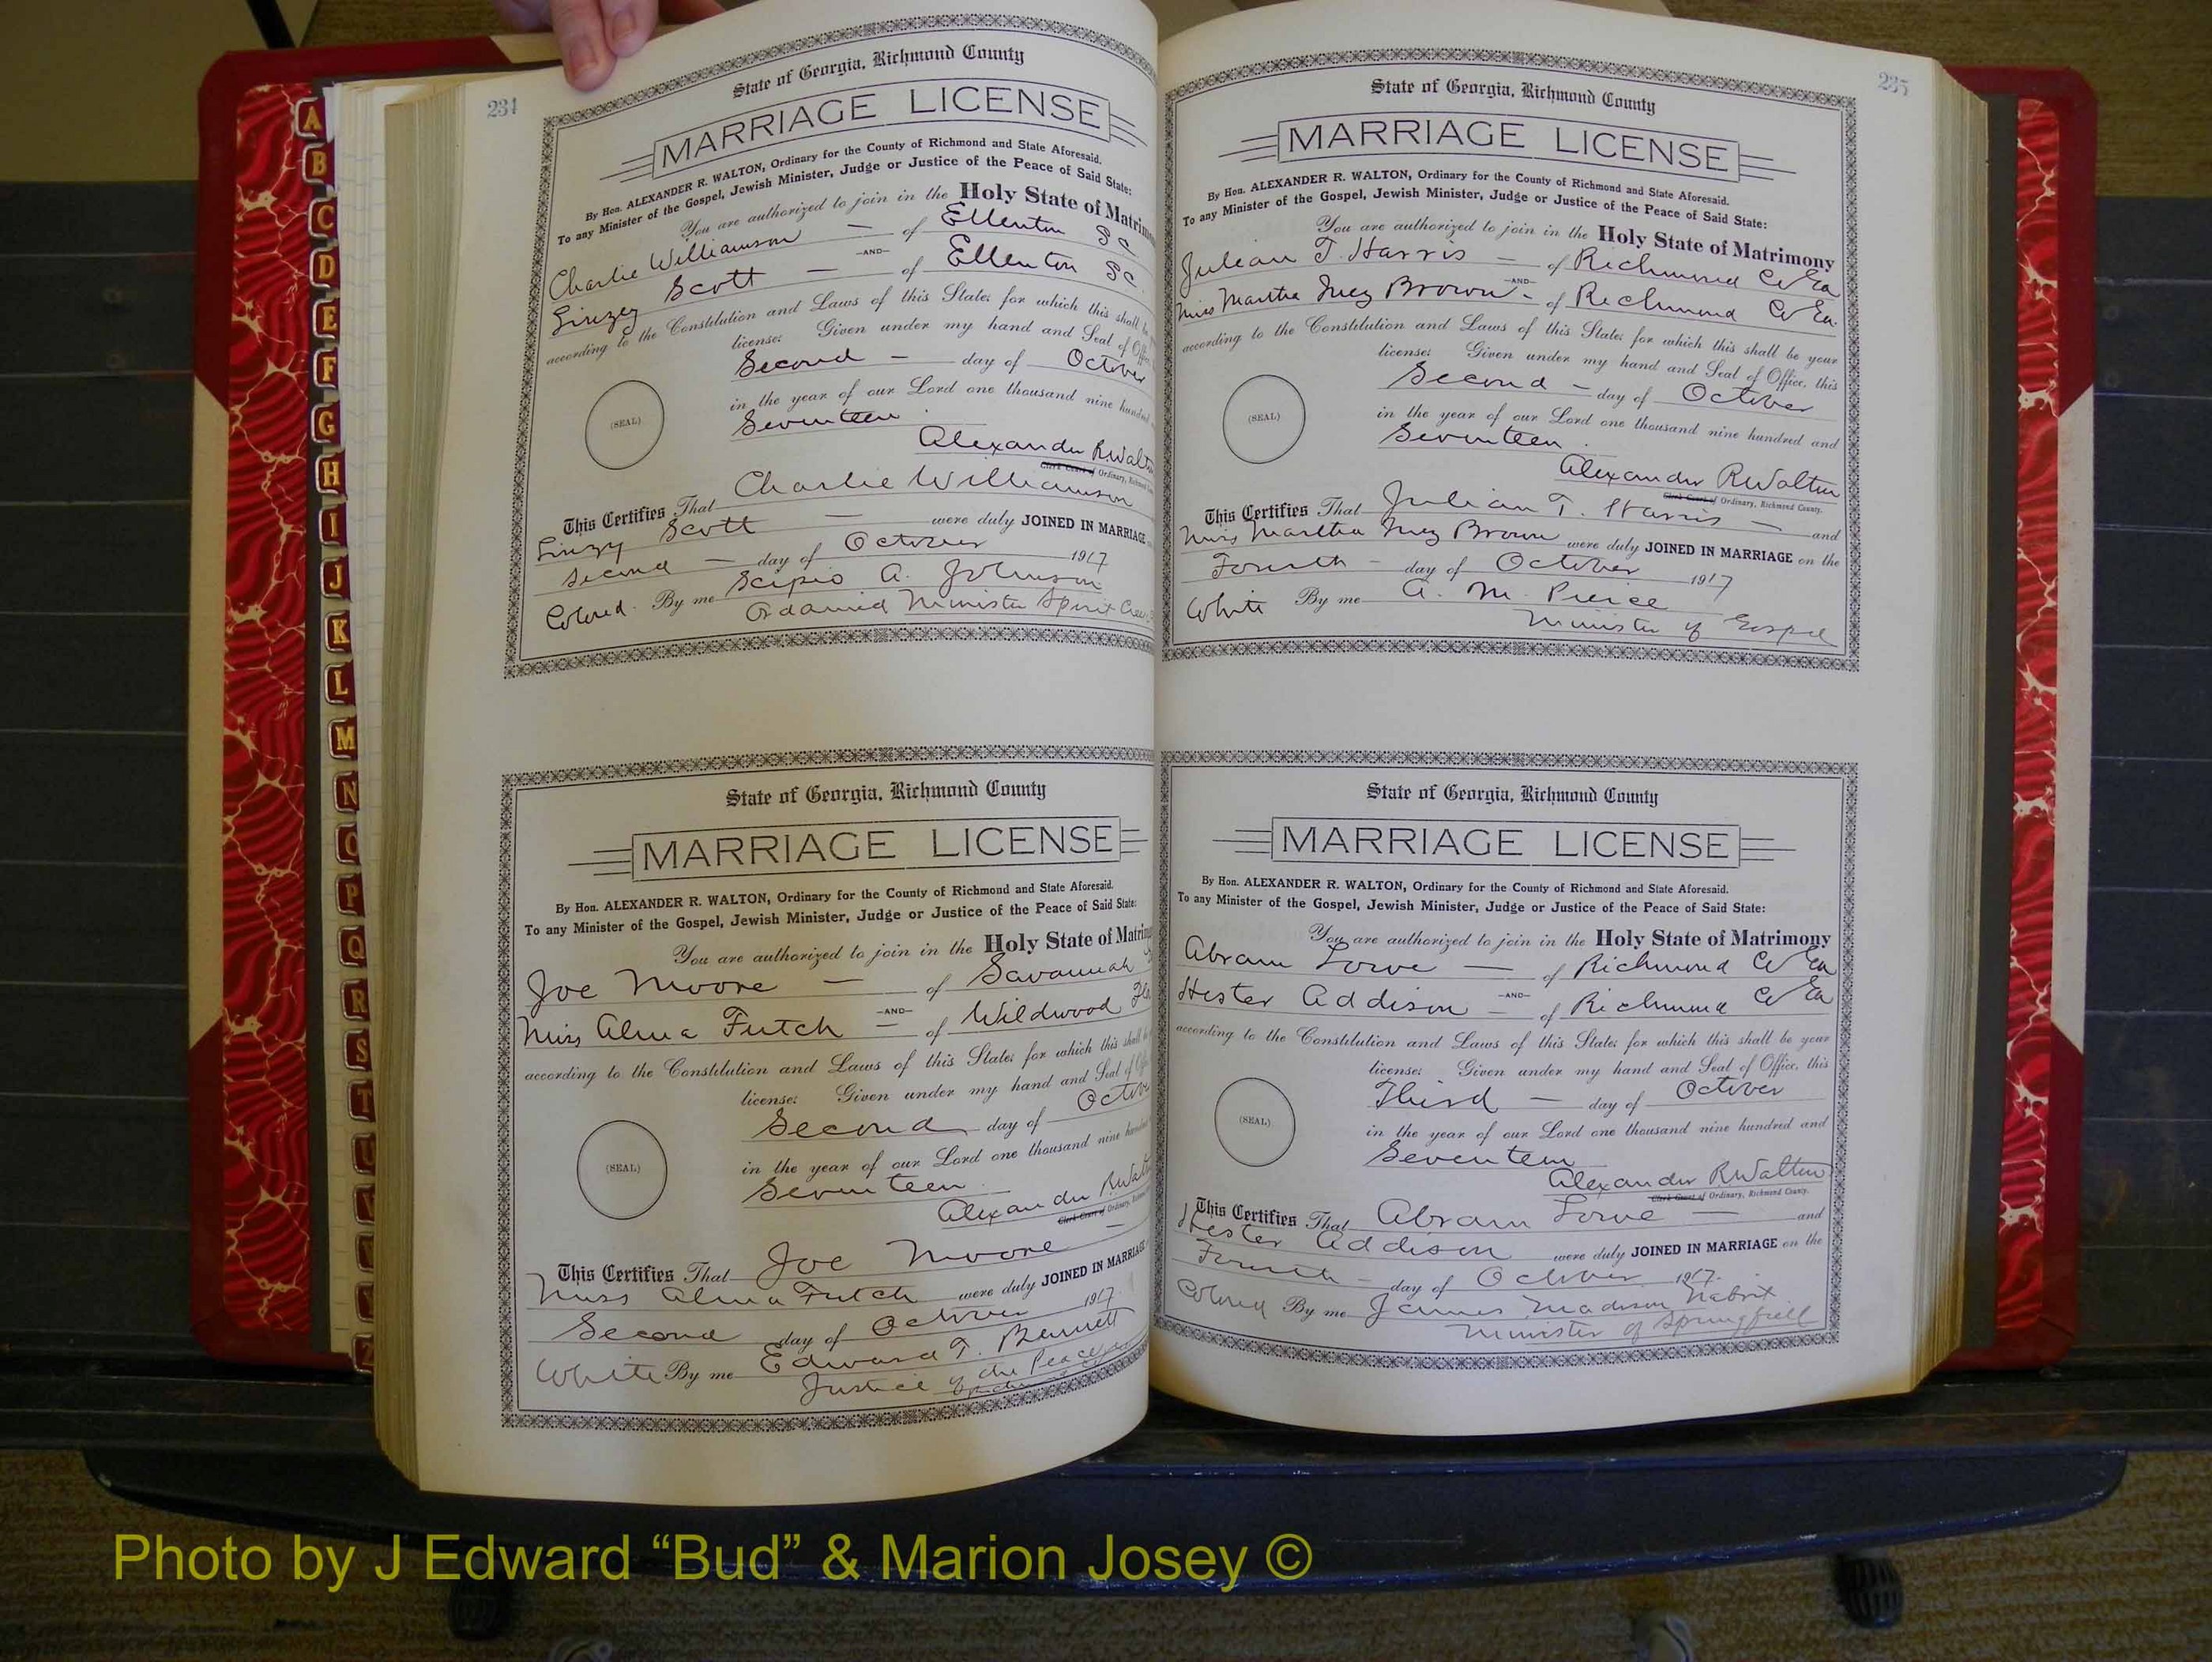 A
B
C
D
E
F
G
H
I
J
K
L
M
N
O
P
Q
R
S
T
U
V
234
State of Georgia, Richmond County
MARRIAGE LICENSE
By Hon. ALEXANDER R. WALTON, Ordinary for the County of Richmond and State Aforesaid.
To any Minister of the Gospel, Jewish Minister, Judge or Justice of the Peace of Said State:
You are authorized to join in the Holy State of
Charlie Williamson — of Ellenton SC
—AND—
Linzey Scott — of Ellenton SC
according to the Constitution and Laws of this State; for which this shall be
license: Given under my hand and Seal of
Second — day of October
(SEAL)
in the year of our Lord one thousand nine hundred
Seventeen
Alexander R Walton
Clerk Court of Ordinary,
This Certifies That Charlie Williamson
Linzy Scott — were duly JOINED IN MARRIAGE
Second — day of October 1917
Colored. By me Scipio A. Johnson
Minister
State of Georgia, Richmond County
MARRIAGE LICENSE
By Hon. ALEXANDER R. WALTON, Ordinary for the County of Richmond and State Aforesaid.
To any Minister of the Gospel, Jewish Minister, Judge or Justice of the Peace of Said State:
You are authorized to join in the Holy State of
Joe Moore — of Savannah
—AND—
Miss Alma Futch — of Wildwood Fla
according to the Constitution and Laws of this State; for which this shall be
license: Given under my hand and Seal of
Second day of
(SEAL)
in the year of our Lord one thousand nine
Seventeen
Alexander
Clerk Court of
This Certifies That Joe Moore —
Miss Alma Futch were duly JOINED IN MARRIAGE
Second day of October 1917
White By me Edward T. Bennett
Justice of the Peace
235
State of Georgia, Richmond County
MARRIAGE LICENSE
By Hon. ALEXANDER R. WALTON, Ordinary for the County of Richmond and State Aforesaid.
To any Minister of the Gospel, Jewish Minister, Judge or Justice of the Peace of Said State:
You are authorized to join in the Holy State of Matrimony
Julian T. Harris — of Richmond Co Ga
—AND—
Miss Martha Inez Brown — of Richmond Co Ga.
according to the Constitution and Laws of this State; for which this shall be your
license: Given under my hand and Seal of Office, this
Second — day of October
(SEAL)
in the year of our Lord one thousand nine hundred and
Seventeen
Alexander R Walton
Clerk Court of Ordinary, Richmond County.
This Certifies That Julian T. Harris — and
Miss Martha Inez Brown were duly JOINED IN MARRIAGE on the
Fourth — day of October 1917
White By me A. M. Pierce
Minister of Gospel
State of Georgia, Richmond County
MARRIAGE LICENSE
By Hon. ALEXANDER R. WALTON, Ordinary for the County of Richmond and State Aforesaid.
To any Minister of the Gospel, Jewish Minister, Judge or Justice of the Peace of Said State:
You are authorized to join in the Holy State of Matrimony
Abram Lowe — of Richmond Co Ga
—AND—
Hester Addison — of Richmond Co Ga
according to the Constitution and Laws of this State; for which this shall be your
license: Given under my hand and Seal of Office, this
Third — day of October
(SEAL)
in the year of our Lord one thousand nine hundred and
Seventeen
Alexander R Walton
Clerk Court of Ordinary, Richmond County.
This Certifies That Abram Lowe — and
Hester Addison were duly JOINED IN MARRIAGE on the
Fourth — day of October 1917.
Colored By me James Madison Nabrit
Minister of Springfield
Photo by J Edward “Bud” & Marion Josey ©